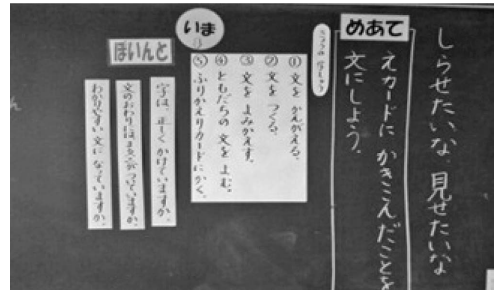 しらせたいな、見せたいな
めあて
えカードに かきこんだことを
文にしよう。
いま
① 文を かんがえる。
② 文を つくる。
③ 文を よみかえす。
④ ともだちの 文を よむ。
⑤ ふりかえりカードに かく。
ぽいんと
字は、正しく かけていますか。
文のおわりには「。」が ついていますか。
わかりやすい 文に なっていますか。